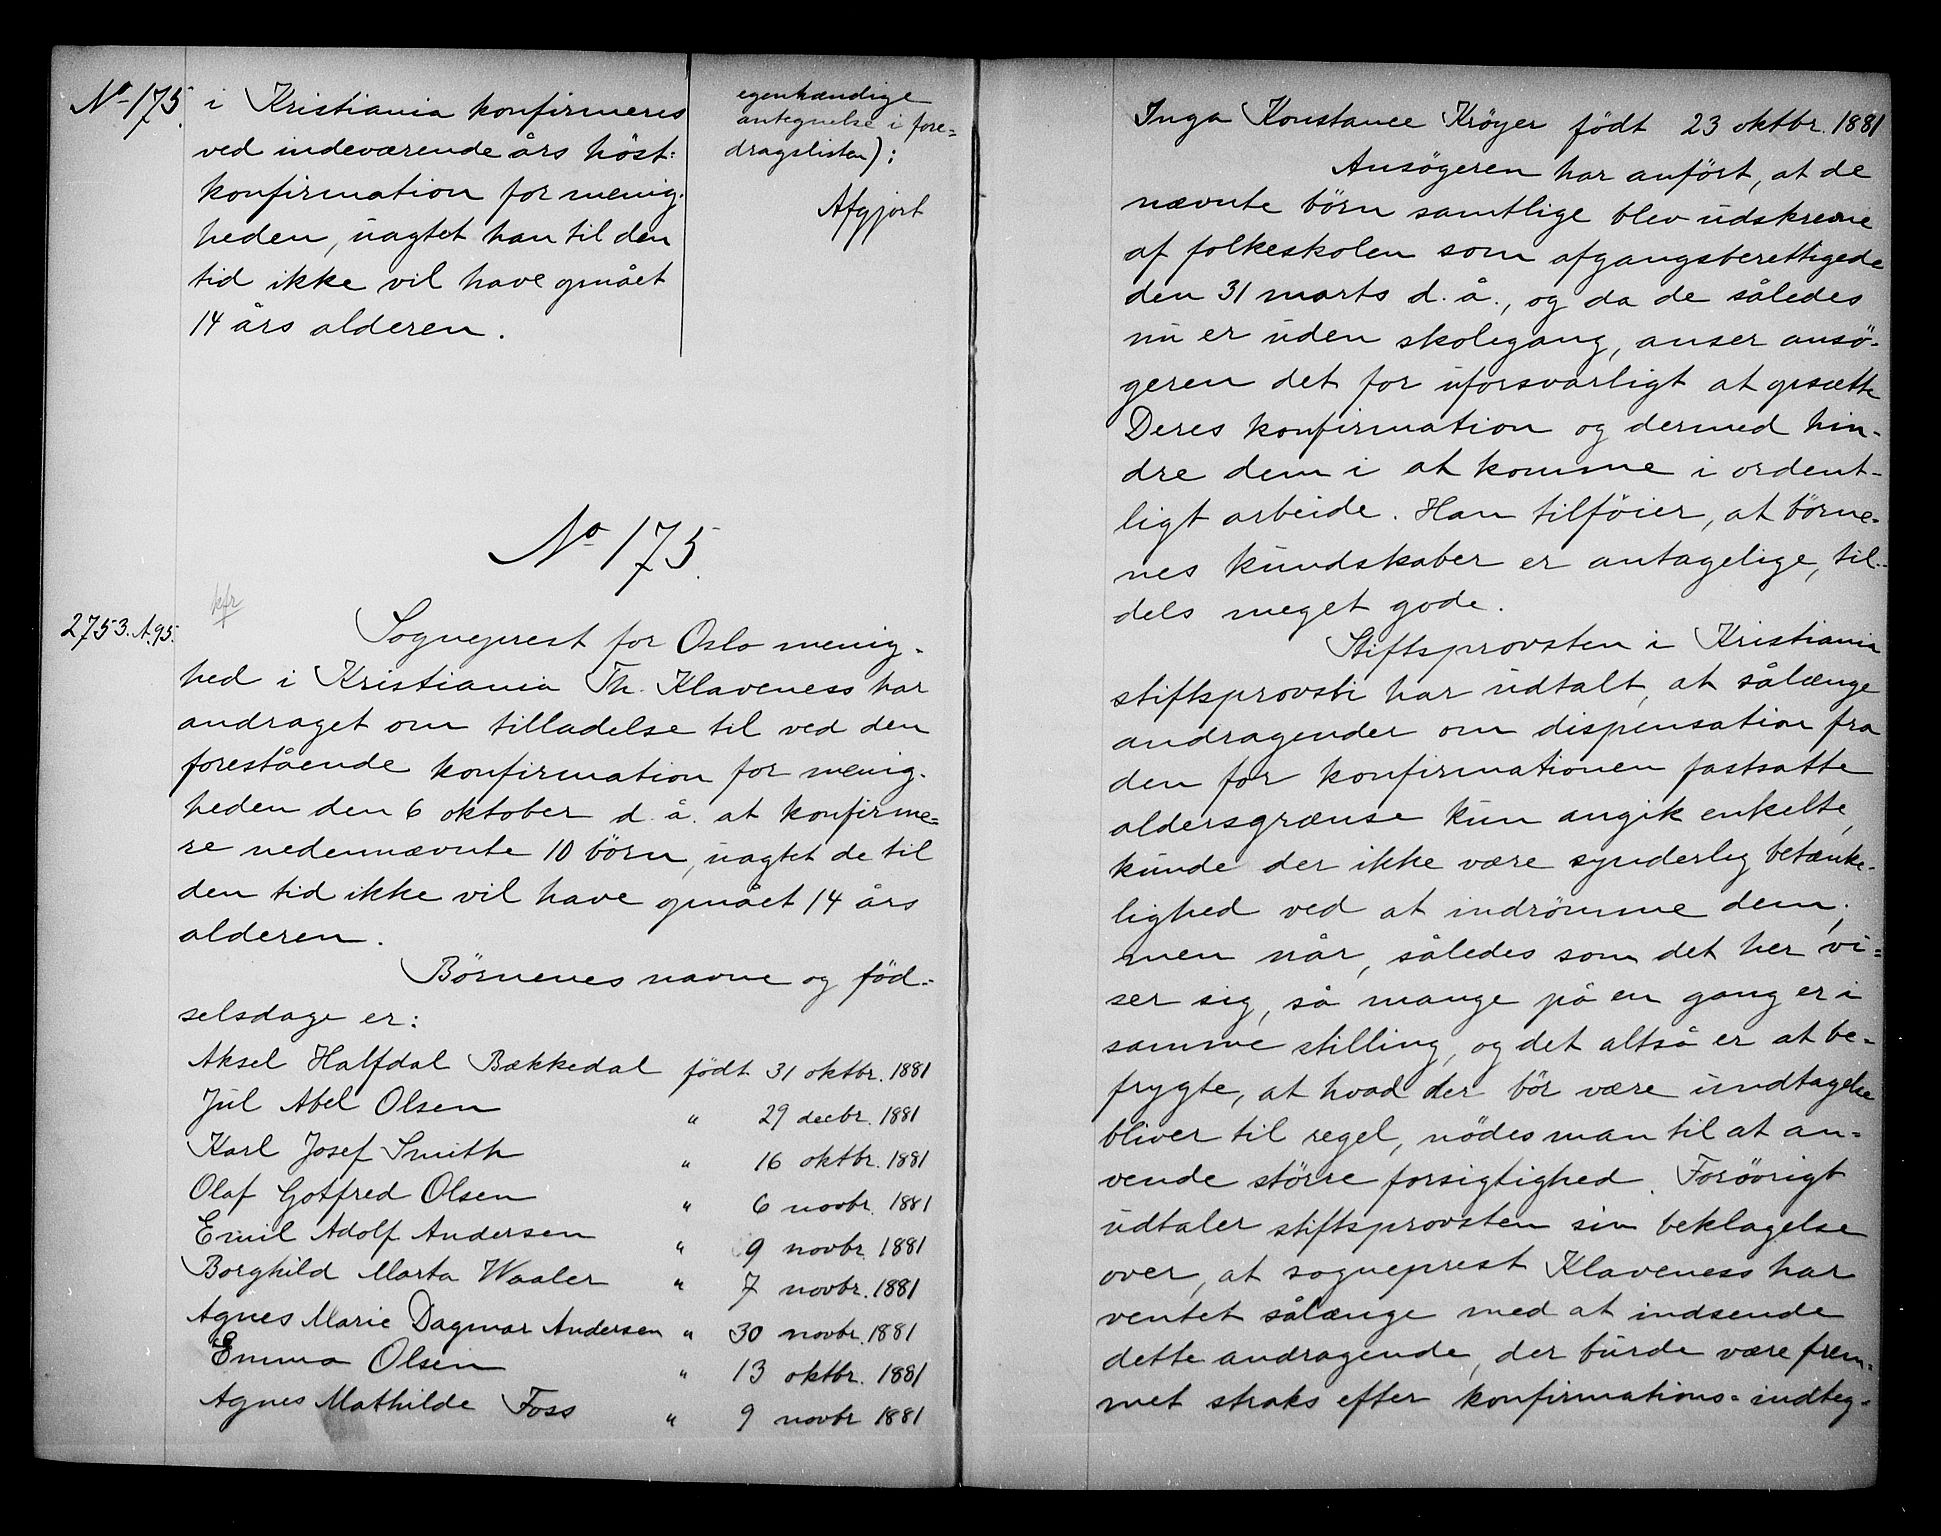 No 175.
i Kristiania konfirmeres
ved indeværende års höst-
konfirmation for menig-
heden, uagtet han til den
tid ikke vil have opnået
14 års alderen.
egenhændige
antegnelse i fore=
dragslisten):
Afgjort
No 175.
kfr
2753. A. 95.
Sogneprest for Oslo menig-
hed i Kristiania Th. Klaveness har
andraget om tilladelse til ved den
forestående konfirmation for menig-
heden den 6 oktober d. å. at konfirme=
re nedennævnte 10 börn, uagtet de til
den tid ikke vil have opnået 14 års
alderen.
Börnenes navne og föd-
selsdage er:
Aksel Halfdal Bækkedal födt 31 oktbr. 1881
Jul Abel Olsen " 29 decbr. 1881
Karl Josef Smith " 16 oktbr. 1881
Olaf Gotfred Olsen " 6 novbr. 1881
Emil Adolf Andersen " 9 novbr. 1881
Borghild Marta Waaler " 7 novbr. 1881
Agnes Marie Dagmar Andersen " 30 novbr. 1881
Emma Olsen " 13 oktbr. 1881
Agnes Mathilde Foss " 9 novbr 1881
Inga Konstance Kröyer födt 23 oktbr. 1881
Ansögeren har anfört, at de
nævnte börn samtlige blev udskrevne
af folkeskolen som afgangsberettigede
den 31 marts d. å., og da de således
nu er uden skolegang, anser ansö-
geren det for uforsvarligt at opsætte
Deres konfirmation og dermed hin-
dre dem i at komme i ordent-
ligt arbeide. Han tilföier, at börne-
nes kundskaber er antagelige, til-
dels meget gode.
Stiftsprovsten i Kristiania
stiftsprovsti har udtalt, at sålænge
andragender om dispensation fra
den for konfirmationen fastsatte
aldersgrænse kun angik enkelte,
kunde der ikke være synderlig betænke-
lighed ved at indrömme dem;
men når, således som det her vi=
ser sig, så mange på en gang er i
samme stilling, og det altså er at be-
frygte, at hvad der bör være undtagelse
bliver til regel, nödes man til at an-
vende större forsigtighed. Foröyrigt
udtaler stiftsprovsten sin beklagelse
over, at sogneprest Klaveness har
ventet sålænge med at indsende
dette andragende, der burde være frem-
met straks efter konfirmations=indteg-